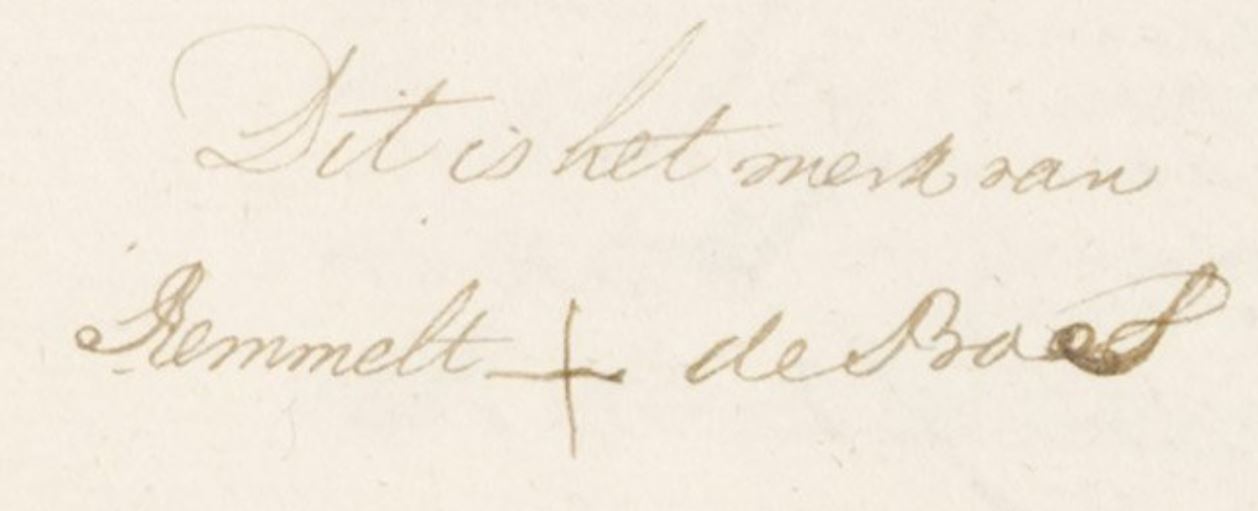 Dit is het merk van
Remmelt + de Boer